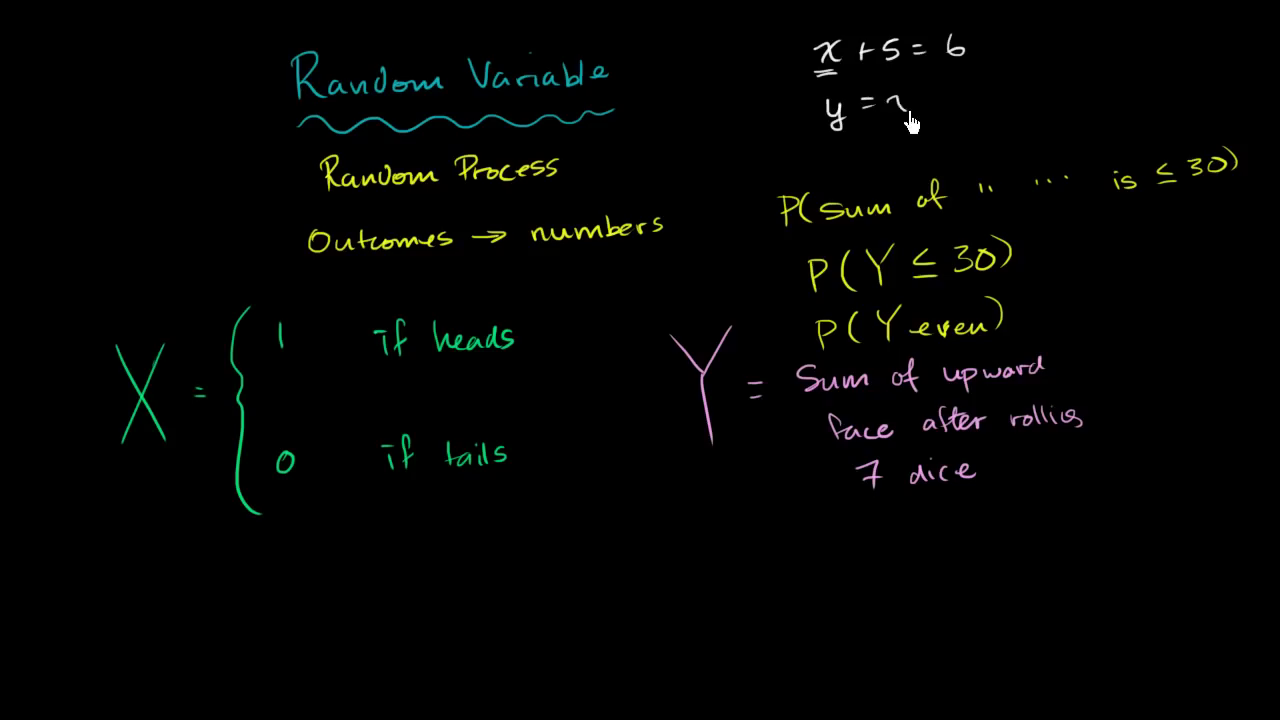 Random Variable
Random Process
Outcomes → numbers
X = { 1 if heads
0 if tails
x + 5 = 6
y =
P(Sum of " ... is ≤ 30)
P(Y ≤ 30)
P(Y even)
Y = Sum of upward
face after rolling
7 dice